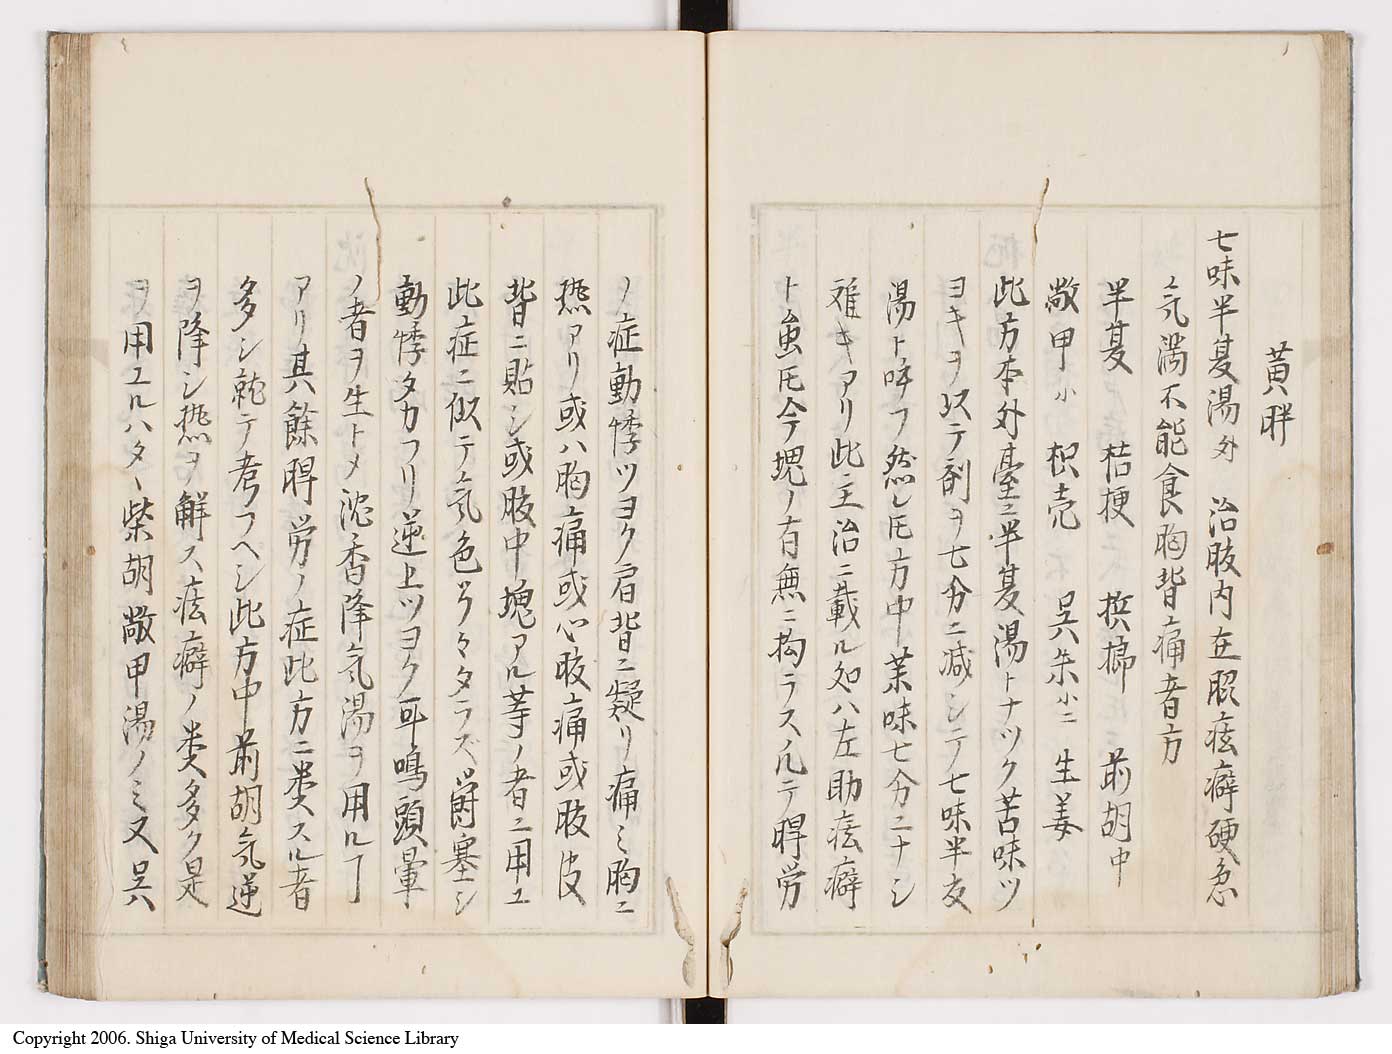 黄胖
七味半夏湯外 治肢内在腹痃癖硬急
之気満不能食胸背痛者方
半夏 桔梗 檳榔 前胡中
敞甲小 枳壳 呉朱小ニ 生姜
此方本外臺ニ半夏湯トナツク苦味ツ
ヨキヲ以テ剤ヲ七分ニ減シテ七味半友
湯ト呼フ然レ𪜈方中菓味七分ニナシ
难キアリ此主治ニ載ル処ハ左助痃癖
ト虽𪜈今塊ノ有無ニ拘ラス凡テ脾労
ノ症動悸ツヨク肩背ニ凝リ痛ミ胸ニ
熱アリ或ハ胸痛或心肢痛或肢皮
背ニ貼シ或肢中塊アル等ノ者ニ用ユ
此症ニ似テ気色ツラ々タラズ欝塞シ
動悸タカフリ逆上ツヨク耳鳴頭暈
ノ者ヲ生トメ沈香降気湯ヲ用ルヿ
アリ其餘脾労ノ症此方ニ类スル者
多シ就テ考フヘシ此方中前胡気逆
ヲ降シ熱ヲ解ス痃癖ノ类多ク是
ヲ用ユルハタヽ柴胡敞甲湯ノミ又呉
Copyright 2006. Shiga University of Medical Science Library